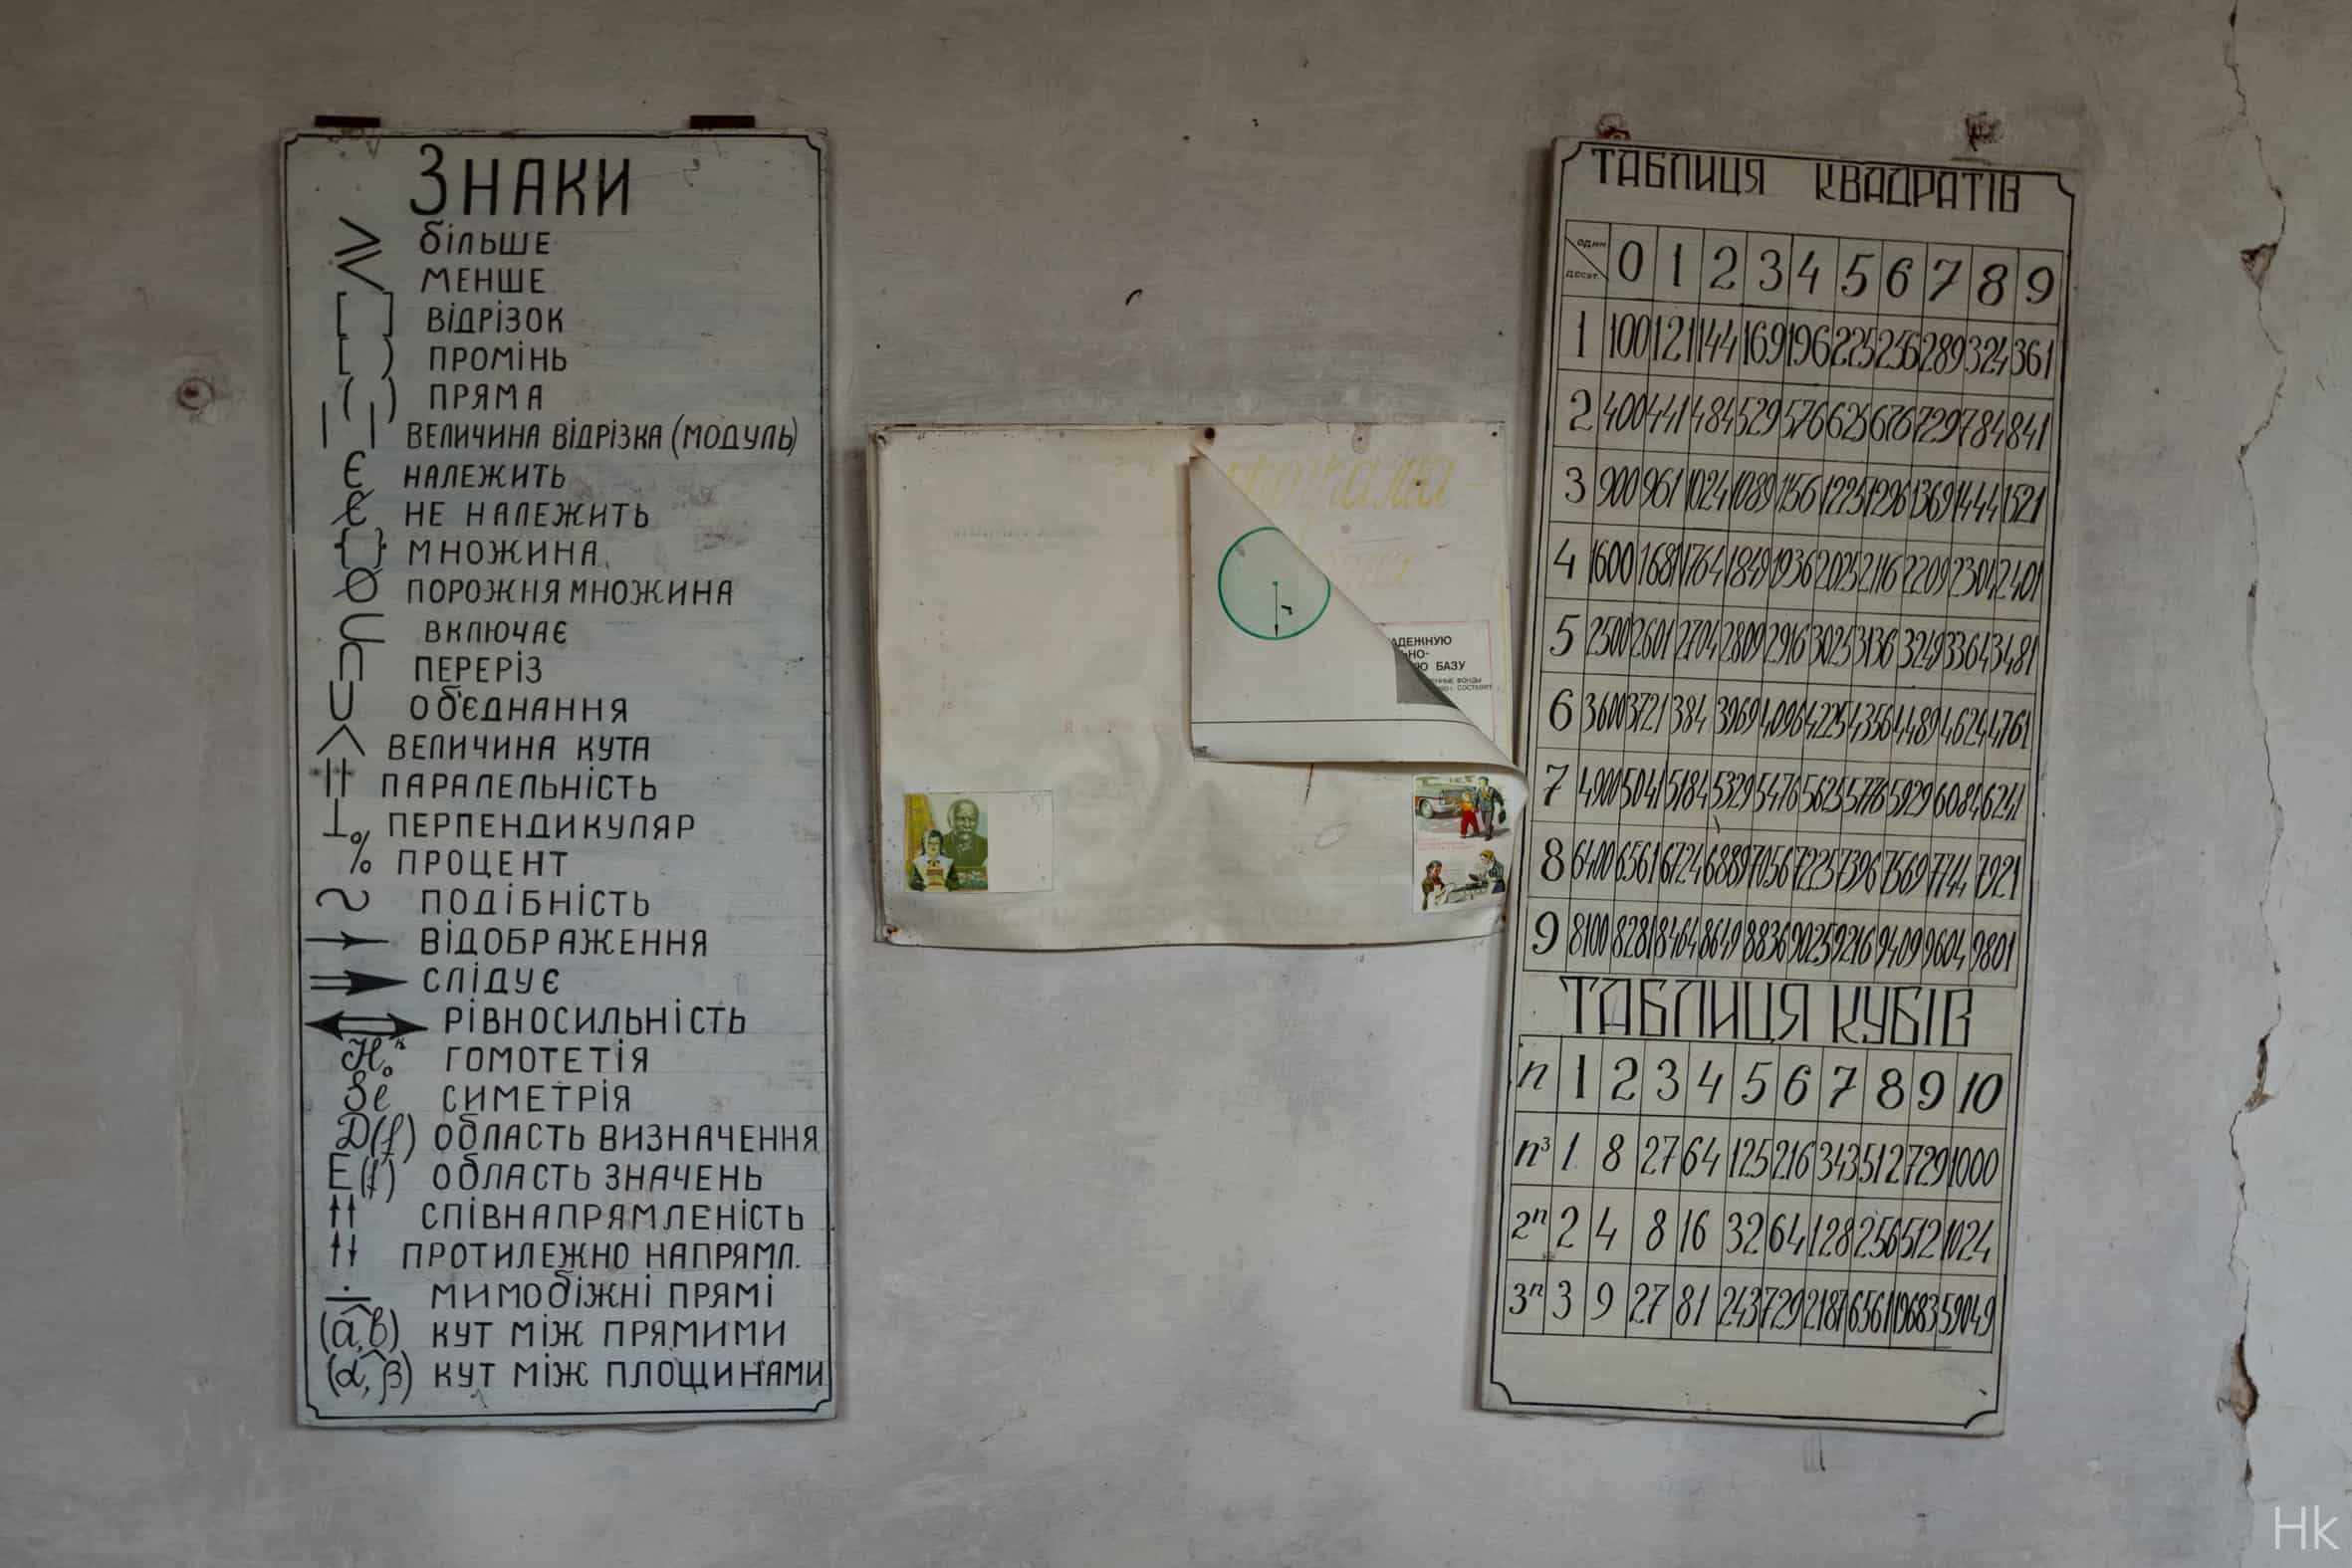 Знаки
> більше
< менше
[ ] відрізок
[ ) промінь
( ) пряма
| | величина відрізка (модуль)
Є належить
∉ не належить
{ } множина
Ø порожня множина
⊂ включає
∩ переріз
∪ об'єднання
^ величина кута
|| паралельність
⊥ перпендикуляр
% % процент
∼ подібність
→ відображення
⇒ слідує
⇔ рівносильність
H₀ᵏ гомотетія
Sℓ симетрія
D(f) область визначення
E(f) область значень
↑↑ співнапрямленість
↑↓ протилежно напрямл.
∸ мимобіжні прямі
(a,^b) кут між прямими
(α,^β) кут між площинами
АДЕЖНУЮ
ЬНО-
Ю БАЗУ
ЕННЫЕ ФОНДЫ
СОСТАВЯТ
r
ТАБЛИЦЯ КВАДРАТІВ
один десят. 0 1 2 3 4 5 6 7 8 9
1 100 121 144 169 196 225 256 289 324 361
2 400 441 484 529 576 625 676 729 784 841
3 900 961 1024 1089 1156 1225 1296 1369 1444 1521
4 1600 1681 1764 1849 1936 2025 2116 2209 2304 2401
5 2500 2601 2704 2809 2916 3025 3136 3249 3364 3481
6 3600 3721 384 3969 4096 4225 4356 4489 4624 4761
7 4900 5041 5184 5329 5476 5625 5776 5929 6084 6241
8 6400 6561 6724 6889 7056 7225 7396 7569 7744 7921
9 8100 8281 8464 8649 8836 9025 9216 9409 9604 9801
ТАБЛИЦЯ КУБІВ
n 1 2 3 4 5 6 7 8 9 10
n³ 1 8 27 64 125 216 343 512 729 1000
2ⁿ 2 4 8 16 32 64 128 256 512 1024
3ⁿ 3 9 27 81 243 729 2187 6561 19683 59049
Hk